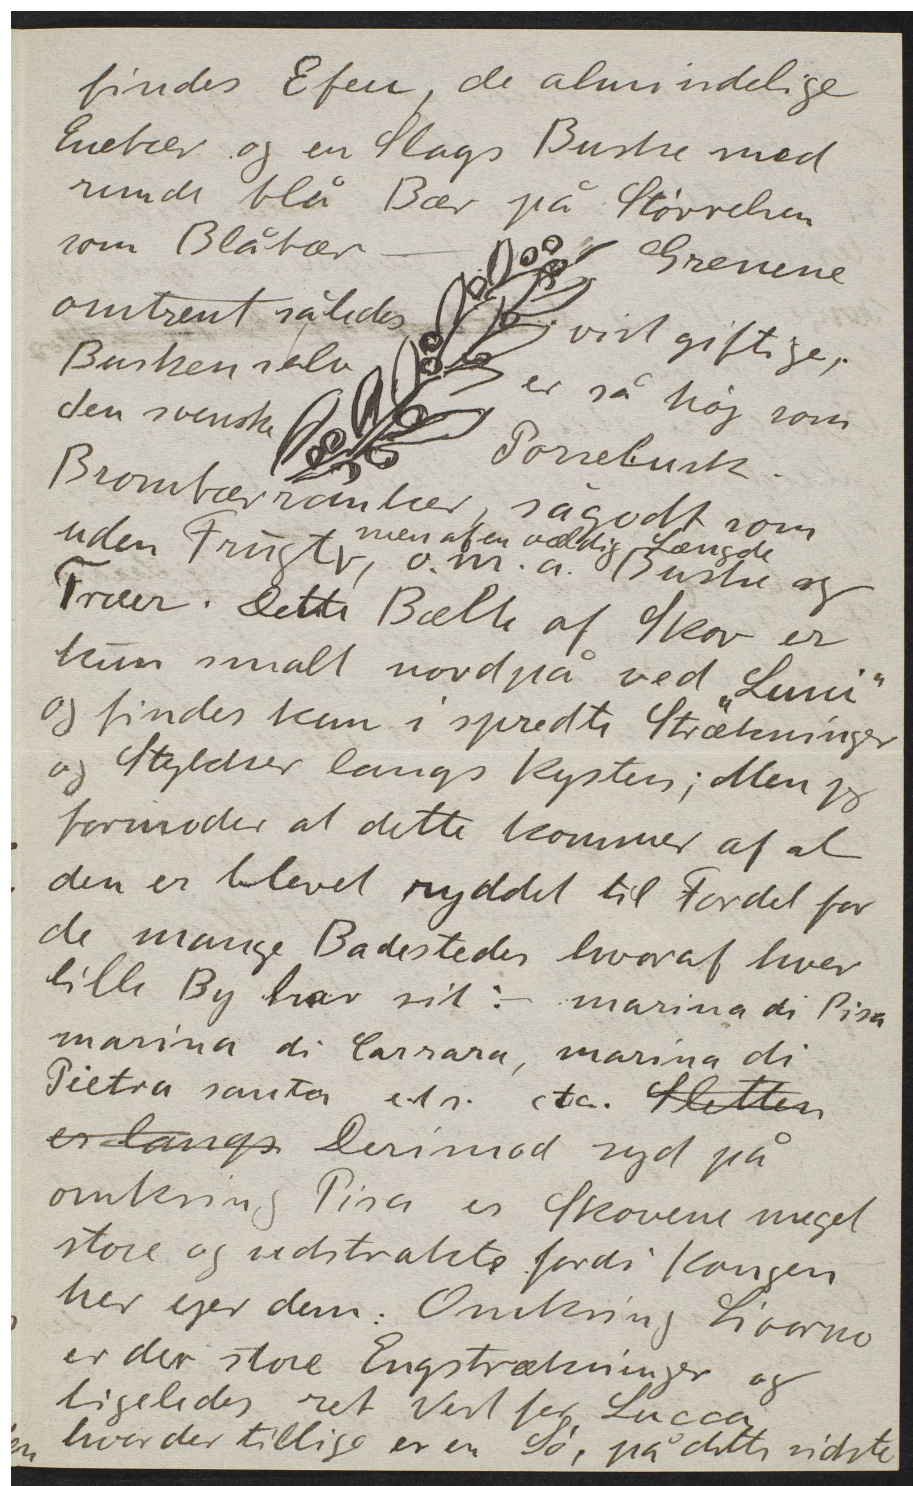 findes Efeu, de almindelige
Enebær og en Slags Buske med
runde blå Bær på Størrelsen
som Blåbær — Grenene
omtrent således vist giftige,
Busken selv er så høj som
den svenske Porsebusk.
Brombærranker, sågodt som
uden Frugt, men af en vældig Længde
o.m.a. Buske og
Træer. Dette Bælte af Skov er
kun smalt nordpå ved „Luni"
og findes kun i spredte Strækninger
og Stykker langs Kysten; Men jeg
formoder at dette kommer af at
den er blevet ryddet til Fordel for
de mange Badesteder hvoraf hver
lille By har sit :- marina di Pisa
marina di Carrara, marina di
Pietra santa etc. etc. Sletten
er langs Derimod syd på
omkring Pisa er Skovene meget
store og udstrakte fordi Kongen
her ejer dem. Omkring Livorno
er der store Engstrækninger og
ligeledes ret Vest for Lucca
hvor der tillige er en Sø, på dette sidste